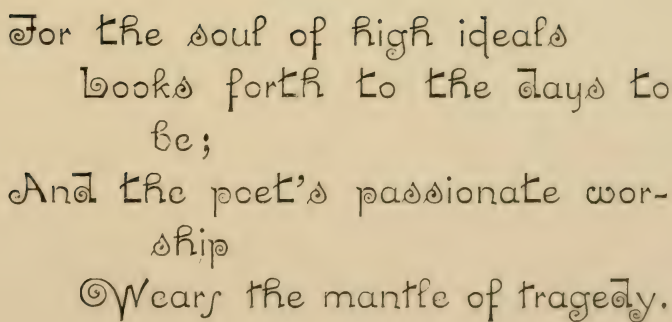 For the soul of high ideals
Looks forth to the days to
be;
And the poet's passionate wor-
ship
Wears the mantle of tragedy.